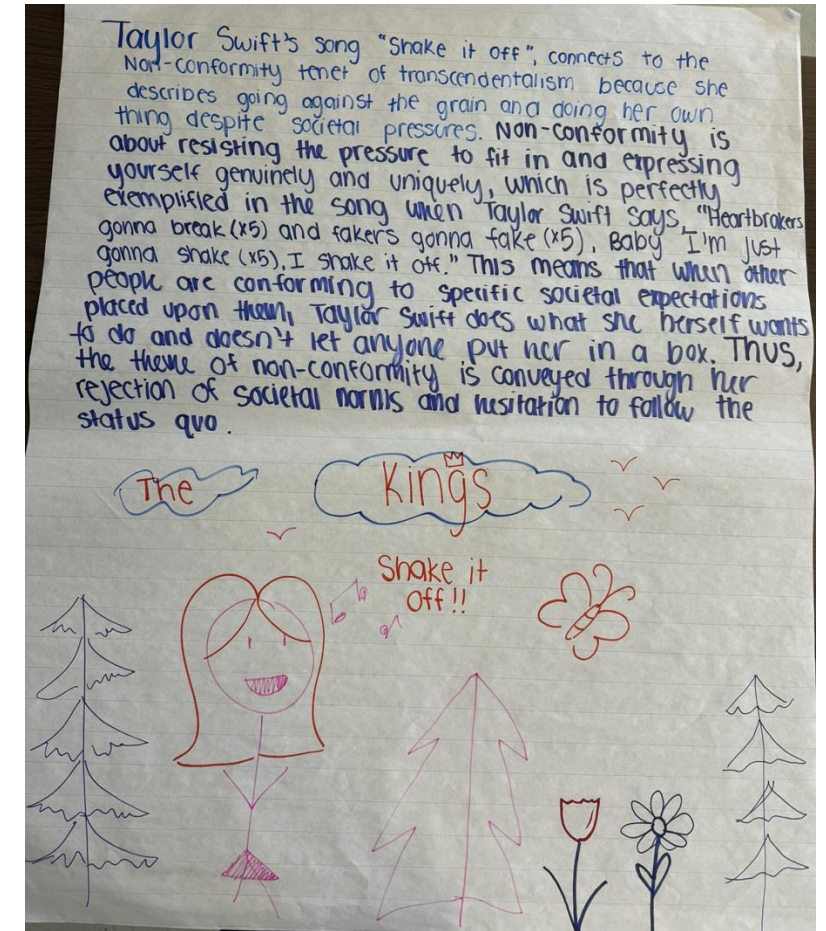 Taylor Swift's song "Shake it off", connects to the
Non-conformity tenet of transcendentalism because she
describes going against the grain and doing her own
thing despite societal pressures. Non-conformity is
about resisting the pressure to fit in and expressing
yourself genuinely and uniquely, which is perfectly
exemplified in the song when Taylor Swift says, "Heartbrakers
gonna break (x5) and fakers gonna fake (x5), Baby I'm just
gonna shake (x5), I shake it off." This means that when other
people are conforming to specific societal expectations
placed upon them, Taylor Swift does what she herself wants
to do and doesn't let anyone put her in a box. Thus,
the theme of non-conformity is conveyed through her
rejection of societal norms and hesitation to follow the
status quo.
The Kings
Shake it
Off!!